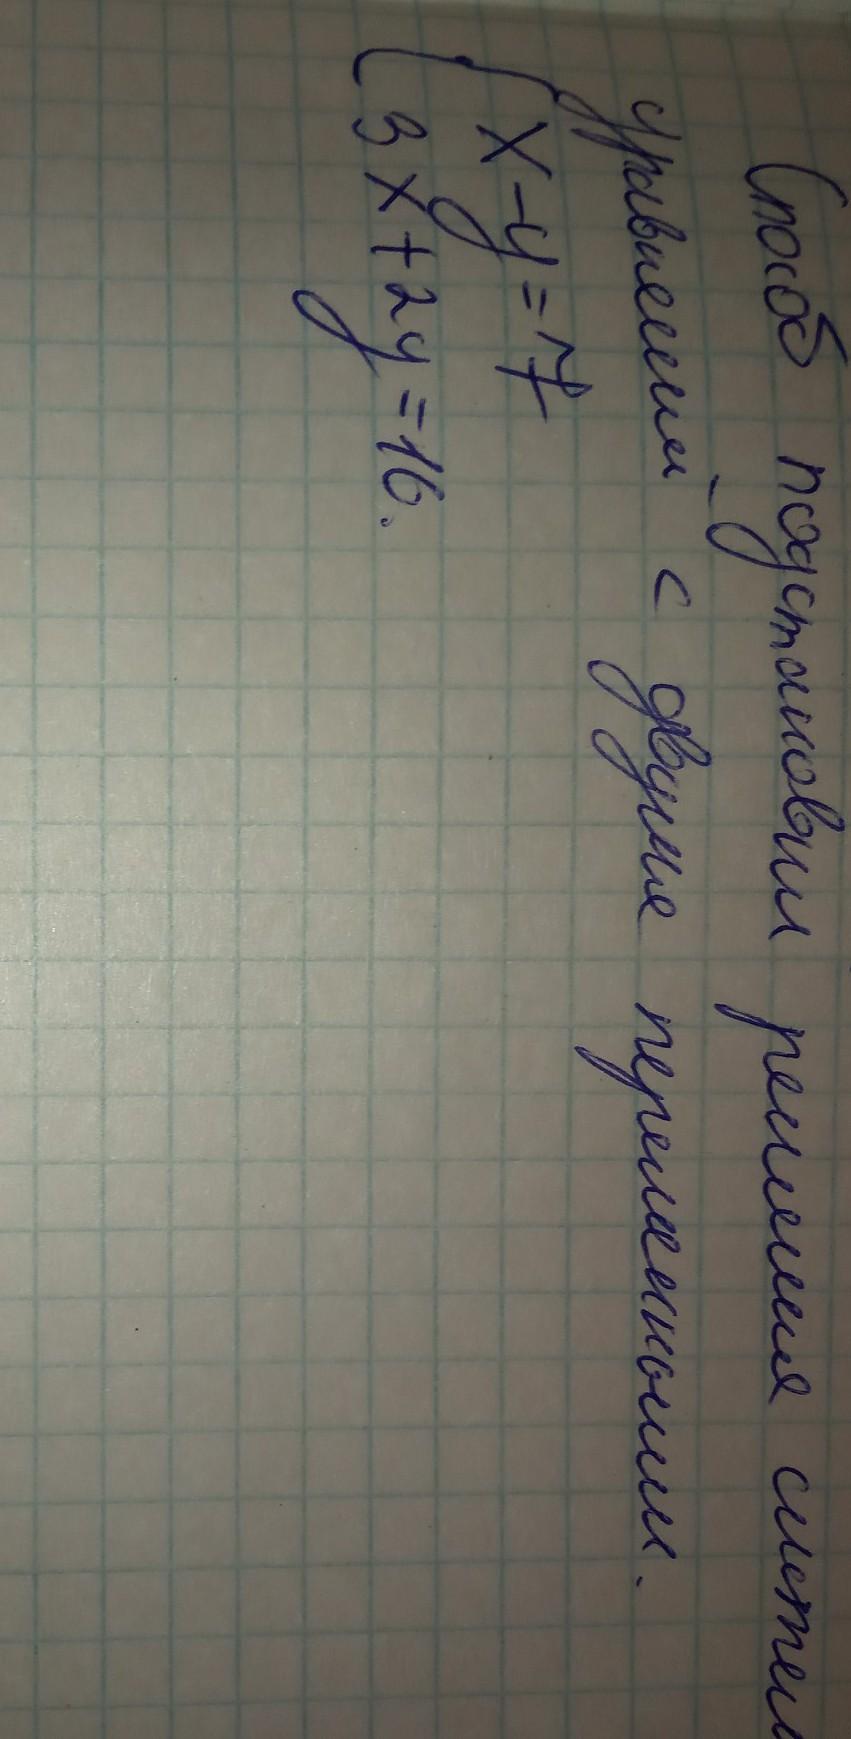 Способ подстановки решения систем
уравнений с двумя переменными.
{ x - y = 7
3x + 2y = 16.